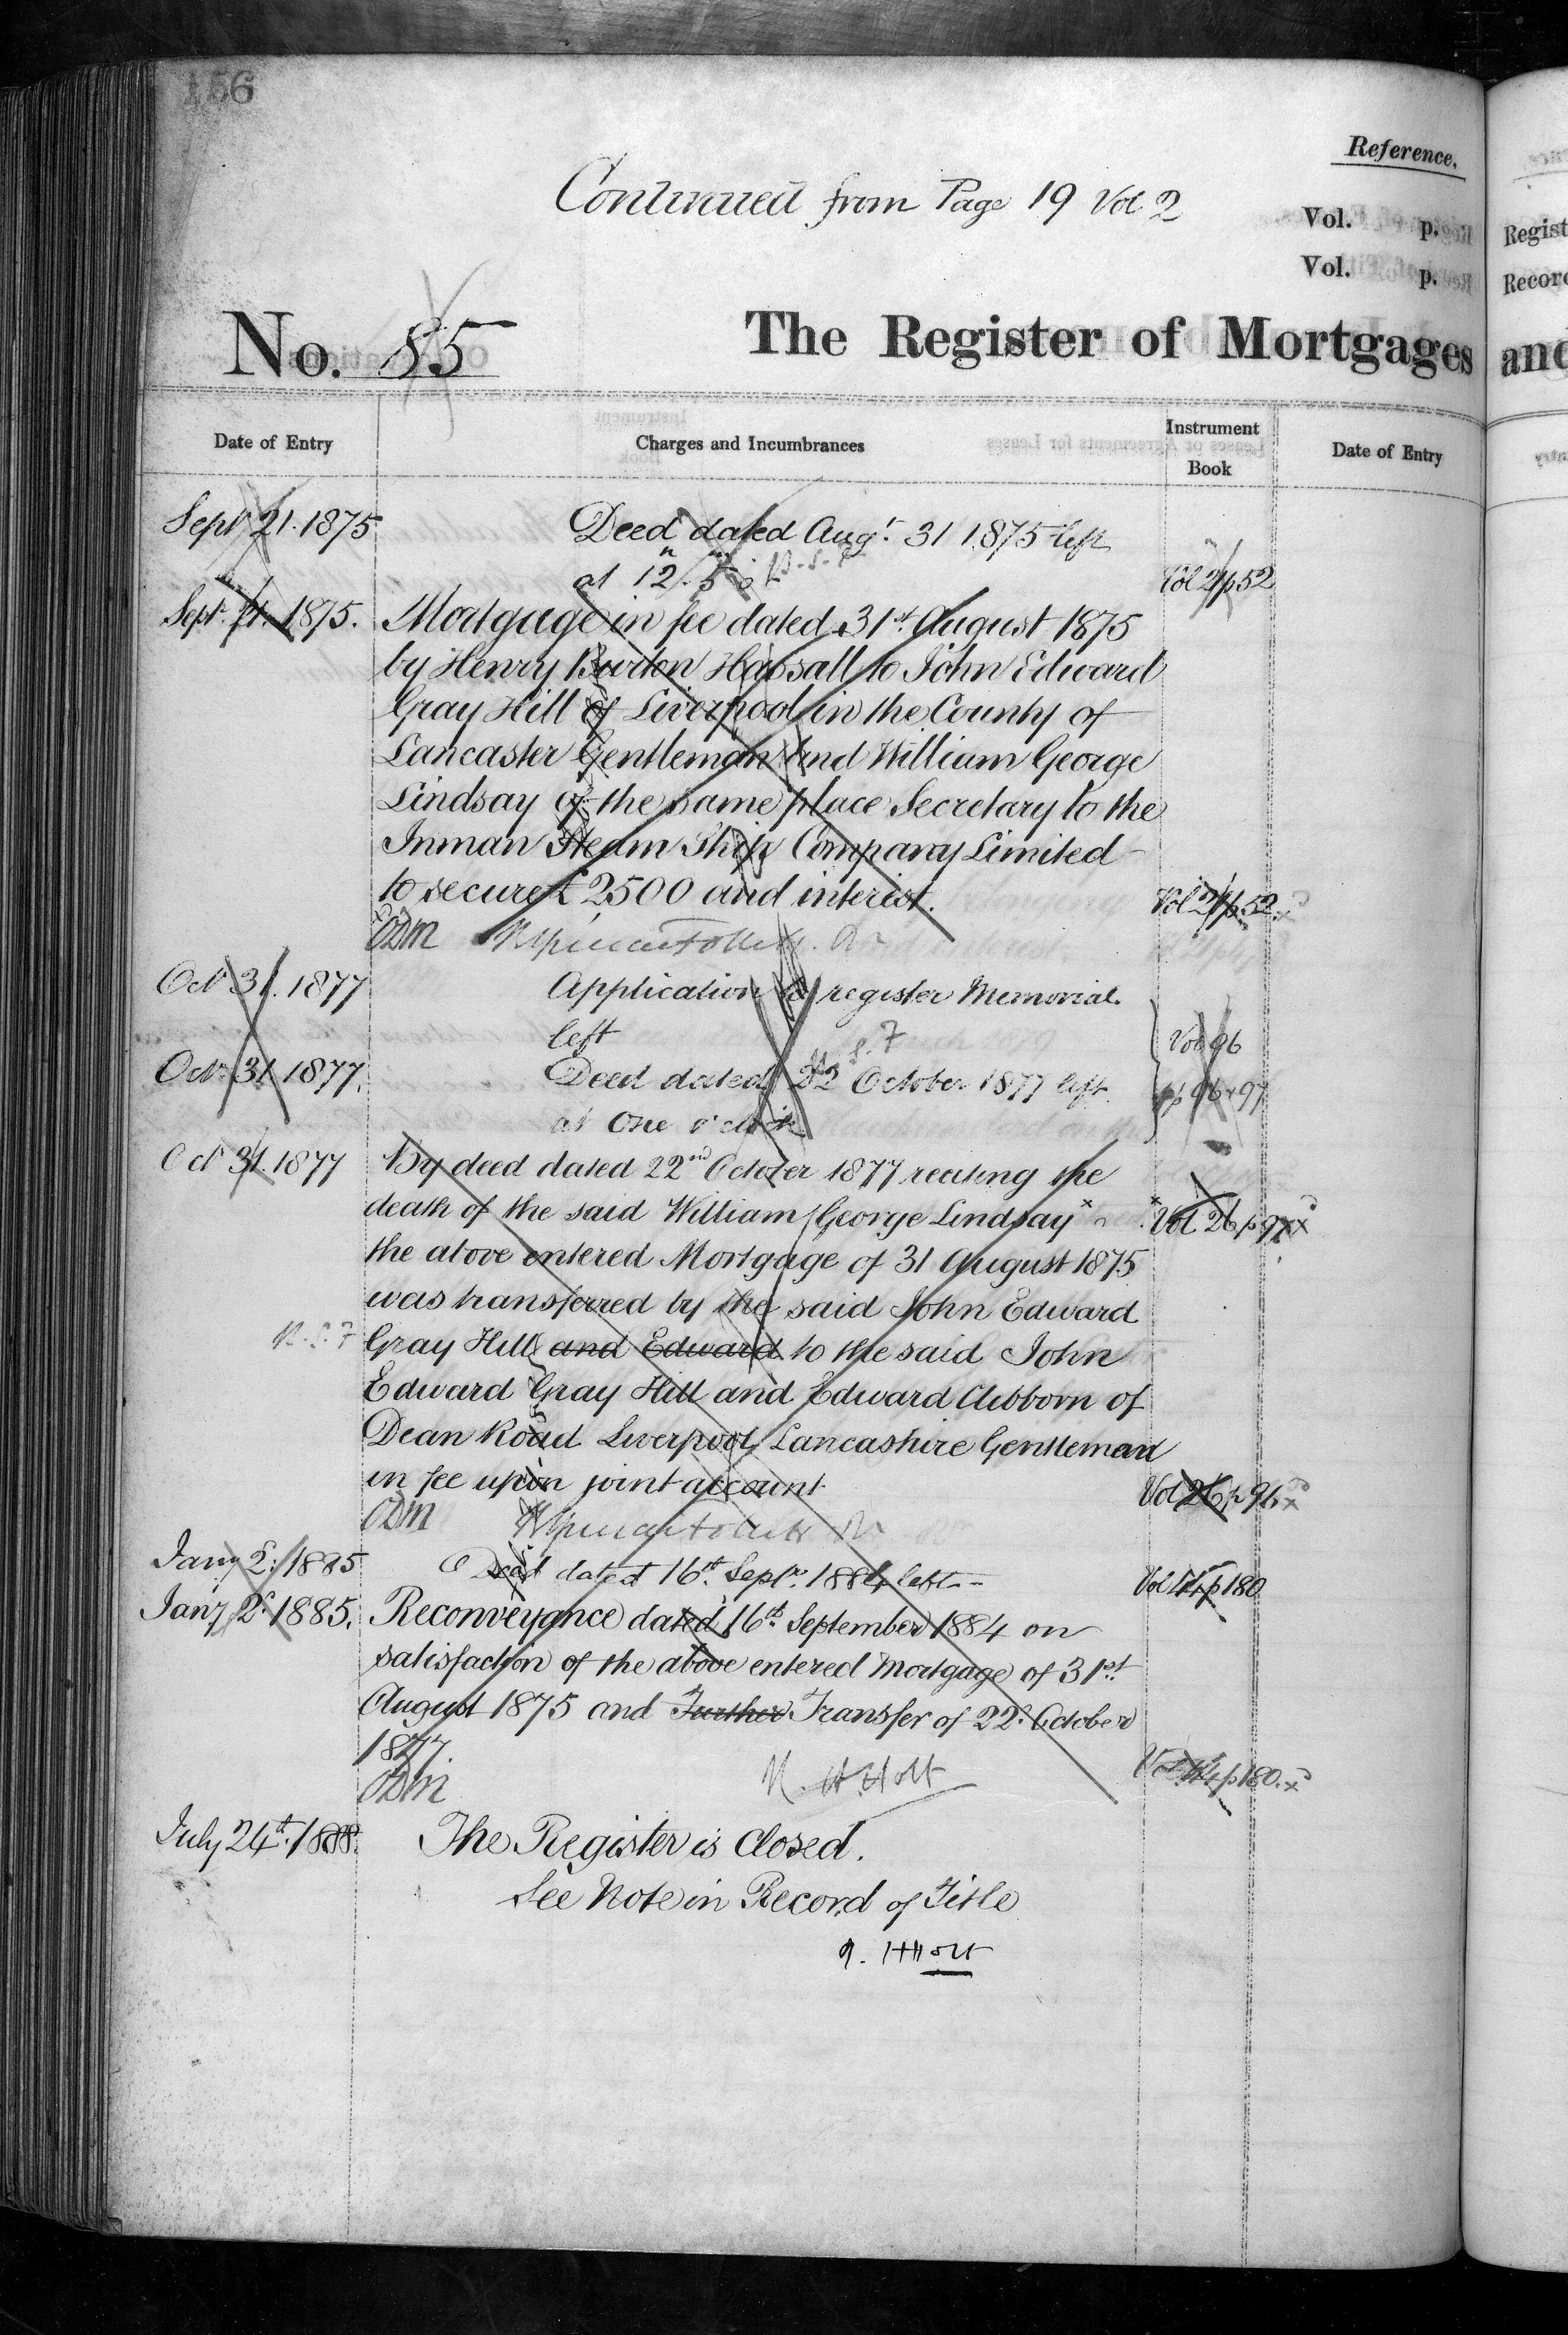 156
Reference.
Continued from Page 19 Vol 2
Vol. p.
Vol. p.
No. 85
The Register of Mortgages
Date of Entry
Charges and Incumbrances
Instrument
Book
Date of Entry
Sept 21. 1875
Deed dated Augt. 31 1875 left
at 12. 5
Vol 21 p 52
Sept. 21. 1875.
Mortgage in fee dated 31st. August 1875
by Henry Burdon Hassall to John Edward
Gray Hill of Liverpool in the County of
Lancaster Gentleman and William George
Lindsay of the same place Secretary to the
Inman Steam Ship Company Limited
to secure £2500 and interist.
Vol 21 p 52.
Oct 31. 1877
Application to register Memorial.
left
Vol 26
Oct. 31 1877.
Deed dated 22 October 1877 left
pp 96 + 97
at One o'clock
Oct 31. 1877
By deed dated 22nd October 1877 reciting the
death of the said William George Lindsay x
x Vol 26 p 97
the above entered Mortgage of 31 August 1875
was transferred by the said John Edward
Gray Hill and Edward to the said John
Edward Gray Hill and Edward Clibborn of
Dean Road Liverpool Lancashire Gentleman
in fee upon joint account
Vol 26 p 96
Jany 2. 1885
Deed dated 16th. Septr. 1884 left
p 180
Jany 2. 1885.
Reconveyance dated 16th September 1884 on
satisfaction of the above entered Mortgage of 31st.
August 1875 and Further Transfer of 22d. October
1877.
H. Holt
p 180.
July 24th. 1888.
The Register is Closed.
See Note in Record of Title
Holt
Regist
Record
and